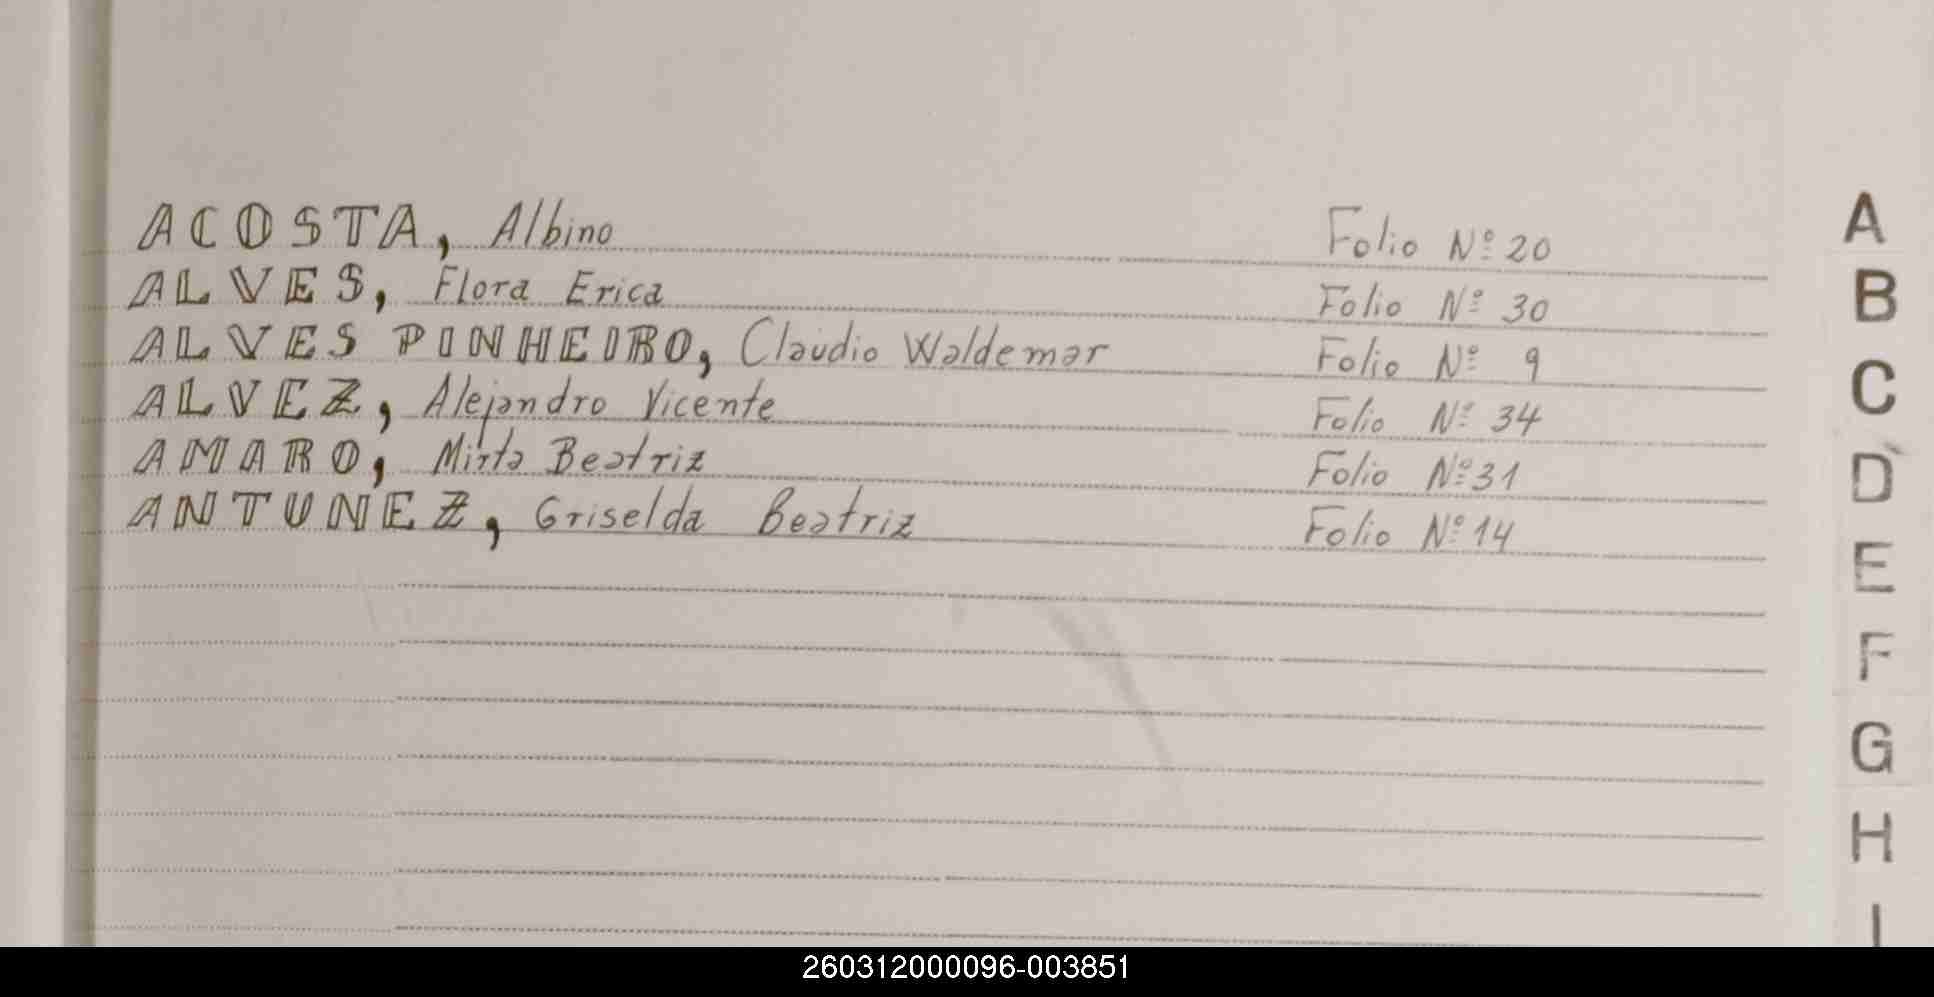 ACOSTA, Albino Folio Nº 20
ALVES, Flora Erica Folio Nº 30
ALVES PINHEIRO, Claudio Waldemar Folio Nº 9
ALVEZ, Alejandro Vicente Folio Nº 34
AMARO, Mirta Beatriz Folio Nº 31
ANTUNEZ, Griselda Beatriz Folio Nº 14
A
B
C
D
E
F
G
H
I
260312000096-003851